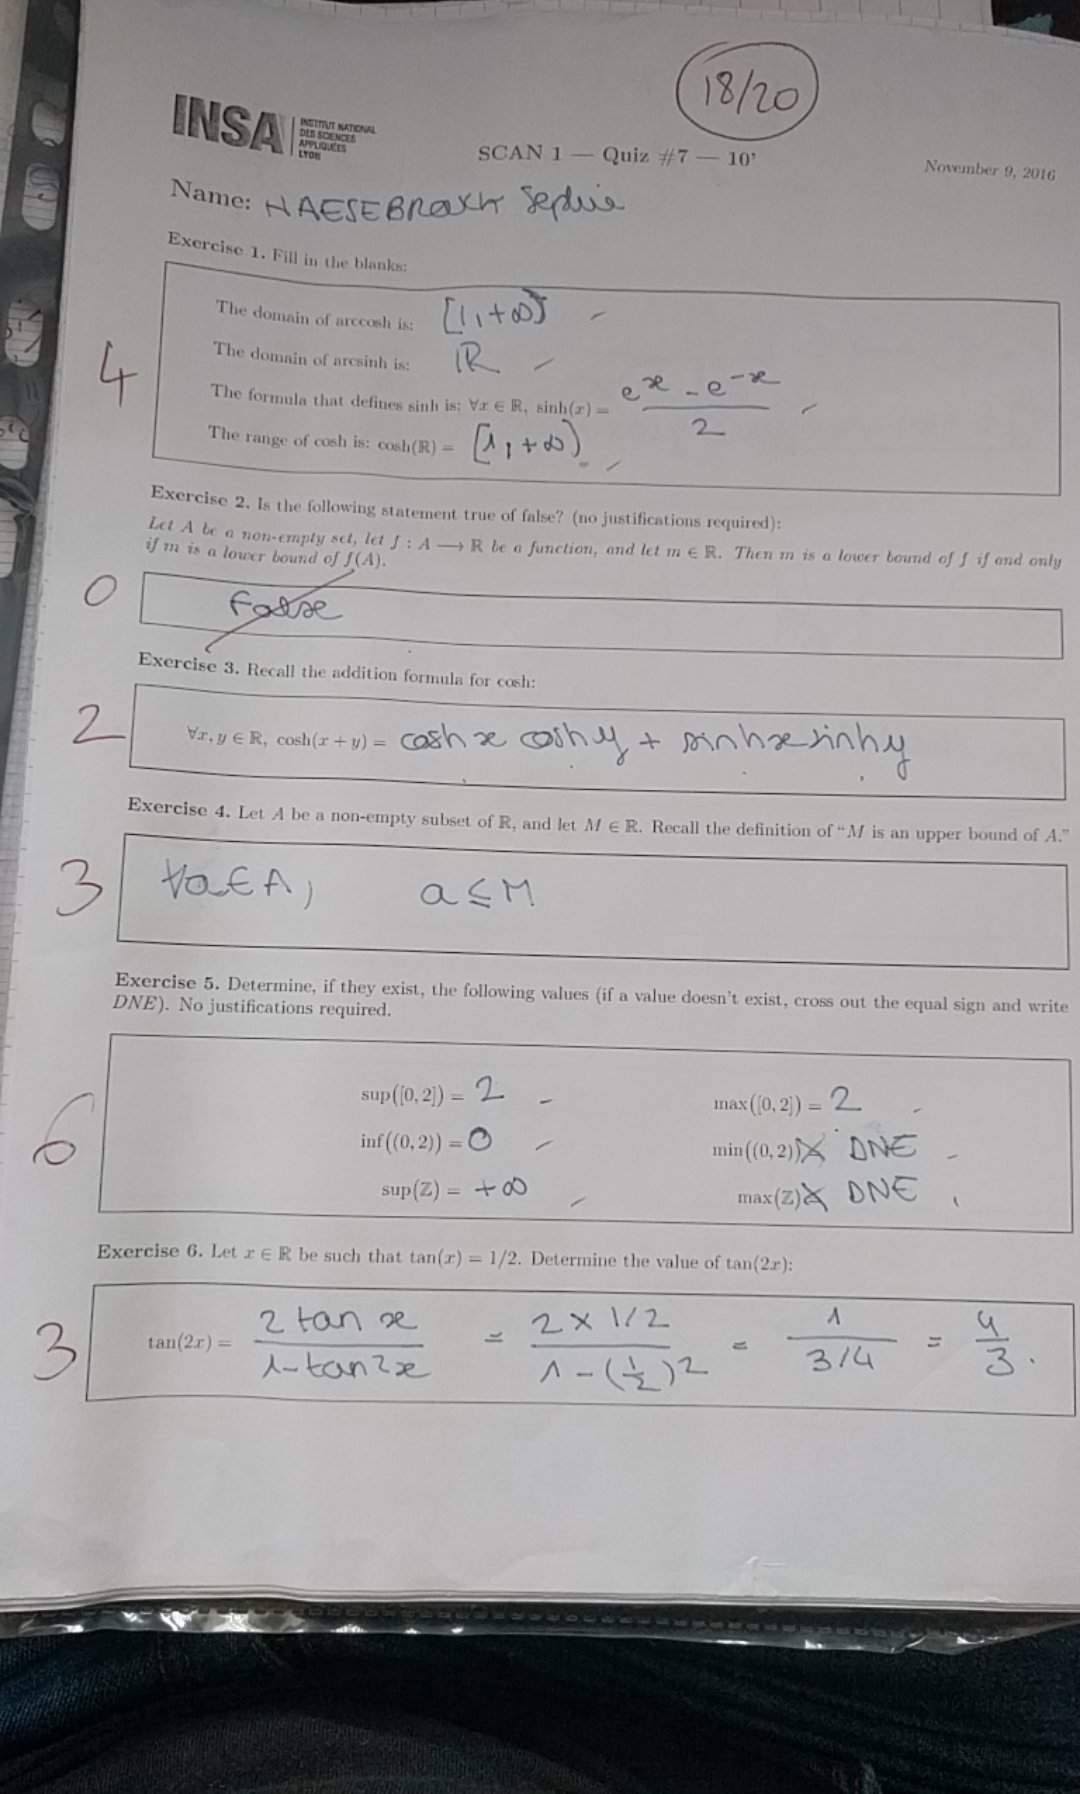 18/20
INSA INSTITUT NATIONAL DES SCIENCES APPLIQUÉES LYON
SCAN 1 — Quiz #7 — 10'
November 9, 2016
Name:
Exercise 1. Fill in the blanks:
The domain of arccosh is: [1,+∞)
The domain of arcsinh is: ℝ
4
The formula that defines sinh is: ∀x ∈ ℝ, sinh(x) = (e^x - e^-x)/2
The range of cosh is: cosh(ℝ) = [1,+∞)
Exercise 2. Is the following statement true of false? (no justifications required):
Let A be a non-empty set, let f : A ⟶ ℝ be a function, and let m ∈ ℝ. Then m is a lower bound of f if and only
if m is a lower bound of f(A).
0 False
Exercise 3. Recall the addition formula for cosh:
2 ∀x, y ∈ ℝ, cosh(x + y) = cosh x cosh y + sinh x sinh y
Exercise 4. Let A be a non-empty subset of ℝ, and let M ∈ ℝ. Recall the definition of “M is an upper bound of A.”
3 ∀a∈A, a ≤ M
Exercise 5. Determine, if they exist, the following values (if a value doesn't exist, cross out the equal sign and write
DNE). No justifications required.
sup([0, 2]) = 2 max([0, 2]) = 2
6 inf((0, 2)) = 0 min((0, 2)) = DNE
sup(ℤ) = +∞ max(ℤ) = DNE
Exercise 6. Let x ∈ ℝ be such that tan(x) = 1/2. Determine the value of tan(2x):
3 tan(2x) = (2 tan x)/(1-tan²x) = (2 × 1/2)/(1-(1/2)²) = 1/(3/4) = 4/3.